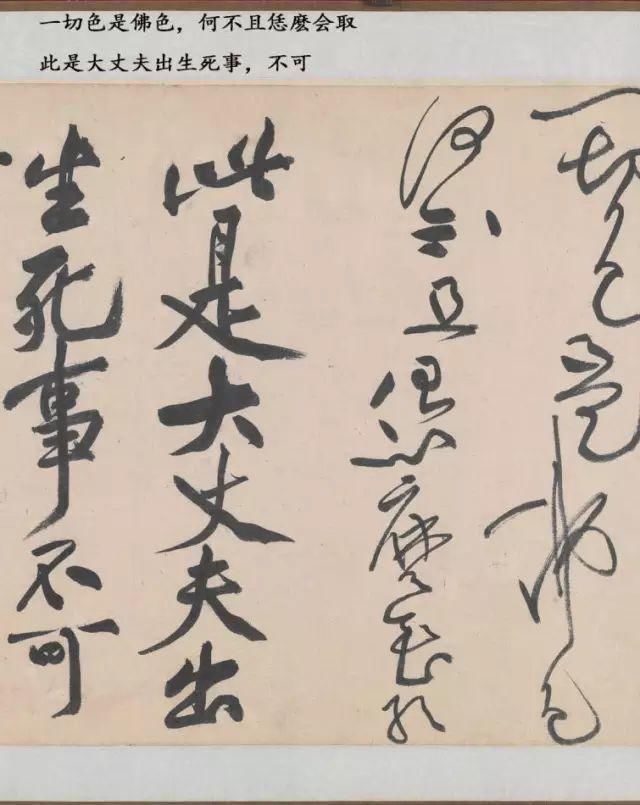 一切色是佛色，何不且恁麽会取
此是大丈夫出生死事，不可
一切色是佛色
何不且恁麼會取
此是大丈夫出
生死事不可